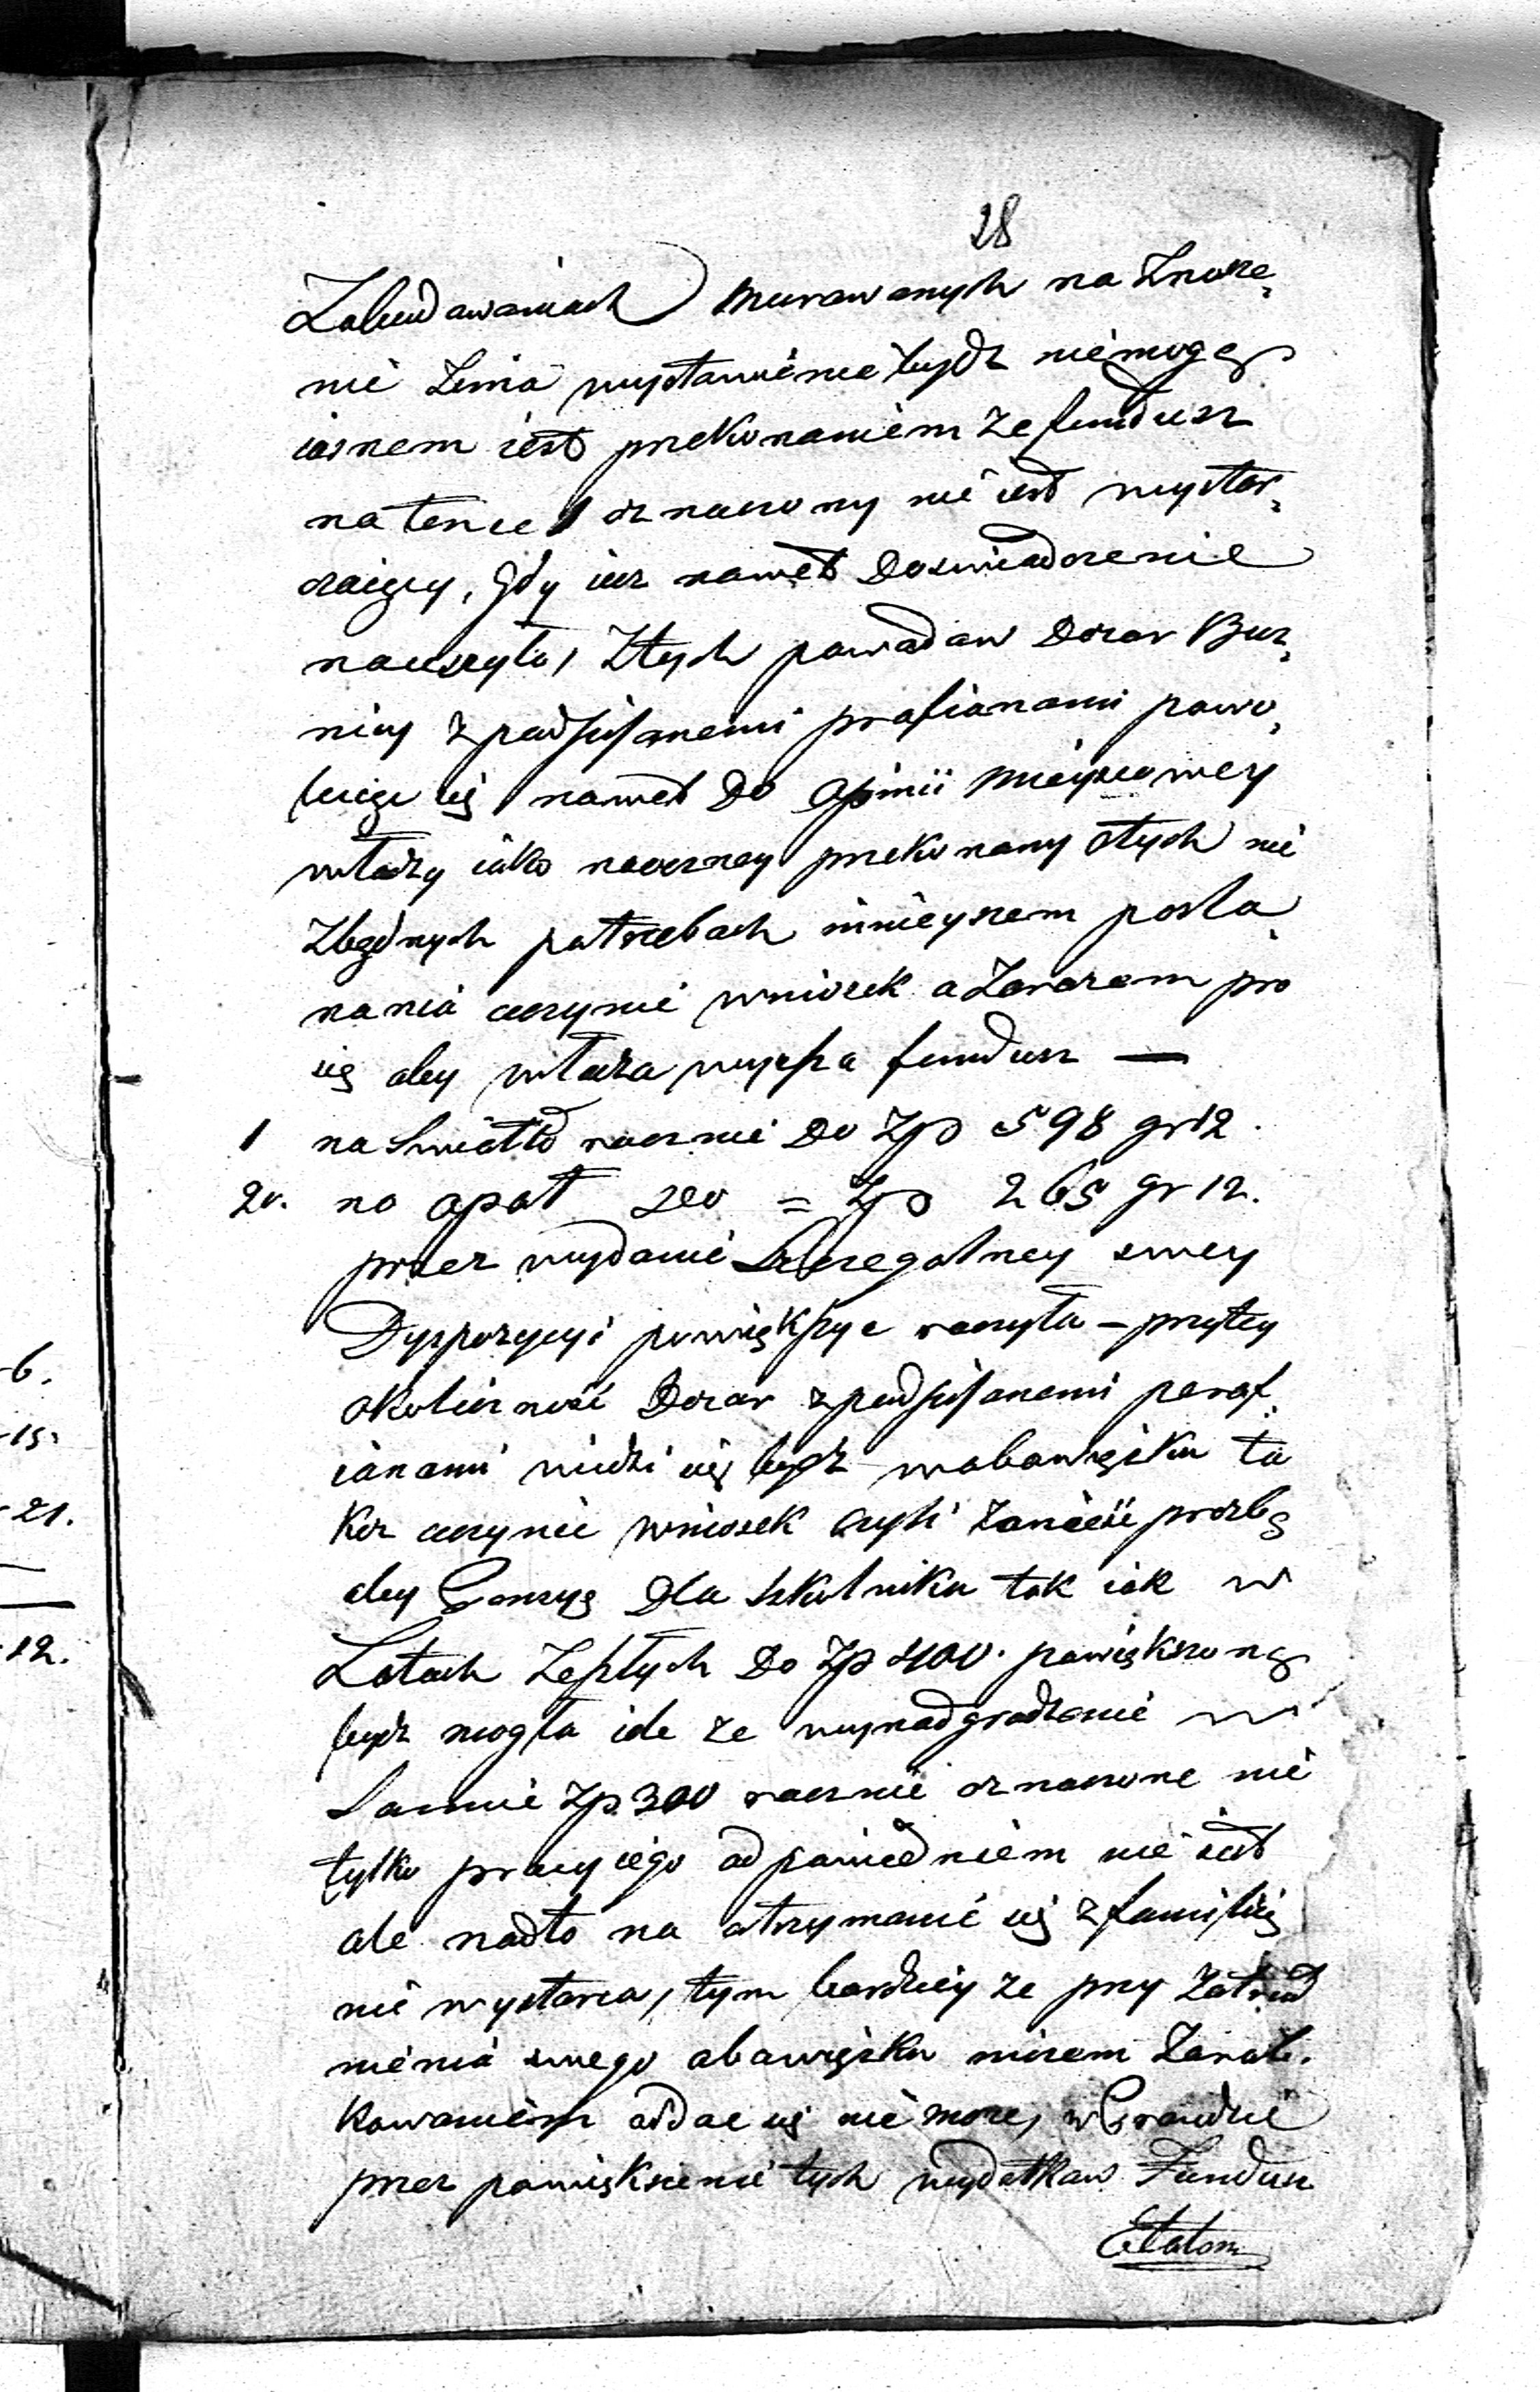 28
Zabudowaniach murowanych na Znisze,
nie Zenia wystawione bydz niemogą
iasnem iest przekonaniem ze fundusz
na ten cel oznaczony nie iest wystar,
czaiący, Gdy iuz nawet Doswiadczenie
nauczyło, Ztych powodow Dozor Boz,
nicy z podpisanemi prafianami powo,
łuiąc się nawet Do Opinii Mieyscowey
władzy iako naoczney przekonany otych nie
Zbędnych potrzebach ninieyszem posta,
nania czyni wniosek a Zarazem pro
się aby władza wyzsza fundusz —
1 na Swiatło rocznie Do Zp 598 gr 12.
2o. na opał Dto = Zp 265 gr 12.
przez wydanie Szczegolney swey
Dyspozycyi powiększyc raczyła – przytey
okoliczność Dozor z podpisanemi paraf,
ianami widzi się bydz wobowiązku ta
kze czynic wniosek czyli Zanieść prozbę
aby Pensyę Dla Szkolnika tak iak w
Latach Zeszłych Do Zp 400. powiększoną
bydz mogła ile ze wynadgrodzenie w
Summie Zp 300 rocznie oznaczone nie
tylko pracy iego odpowiedniem nie iest
ale nadto na utrzymanie się z familią
nie wystarcza, tym bardziey ze przy Zatrud
nienia swego obowiązku niczem Zarob.
kowaniem oddac się nie moze, wPrawdzie
przez powiększenie tych wydatkow Fundusz
Etatom
6.
15.
21.
12.